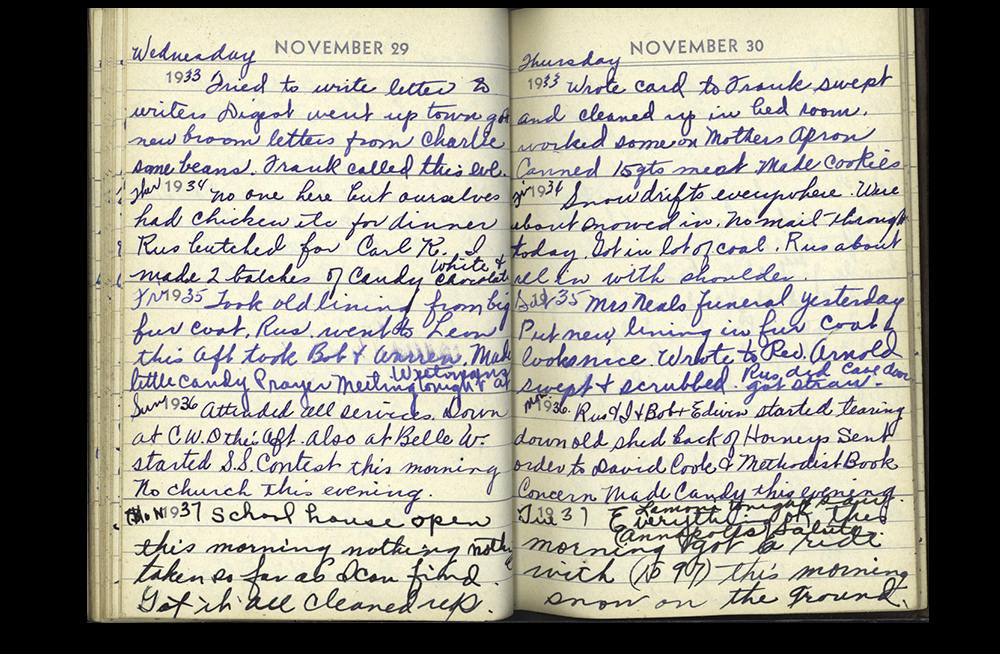 Wednesday NOVEMBER 29
1933 Tried to write letter to
writers Digest went up town got
new broom letters from Charlie
some beans. Frank called this eve.
1934 no one here but ourselves
had chicken etc for dinner
Rus butched for Carl R. I
made 2 batches of Candy White & Chocolate
Fri 1935 Took old lining from big
fur coat, Rus went to Leon
this Aft took Bob & Warren. Made
little candy Prayer Meeting tonight at
Sun 1936 Attended all services. Down
at C.W.D this Aft. also at Belle W.
started S.S. Contest this morning
No church this evening.
Mon 1937 School house open
this morning nothing
taken so far as I can find.
Got it all cleaned up.
Thursday NOVEMBER 30
1933 Wrote card to Frank swept
and cleaned up in bed room.
worked some on Mothers Apron
Canned 15 qts meat Made Cookies
Fri 1934 Snow drifts everywhere. Were
about snowed in. No mail through
today. Got in lot of coal. Rus about
all in with shoulder.
Sat 1935 Mrs Neals funeral yesterday
Put new lining in fur coat &
looks nice. Wrote to Rev. Arnold
swept & scrubbed. Rus did Cave door
got straw.
Mon 1936. Rus & I & Bob & Edwin started tearing
down old shed back of Horneys Sent
order to David Cook & Methodist Book
Concern Made Candy this evening.
Lamoni tonight
Tue 1937 Everything OK this
Annapolis Salute
morning got a ride
with (No 907) this morning
snow on the ground.